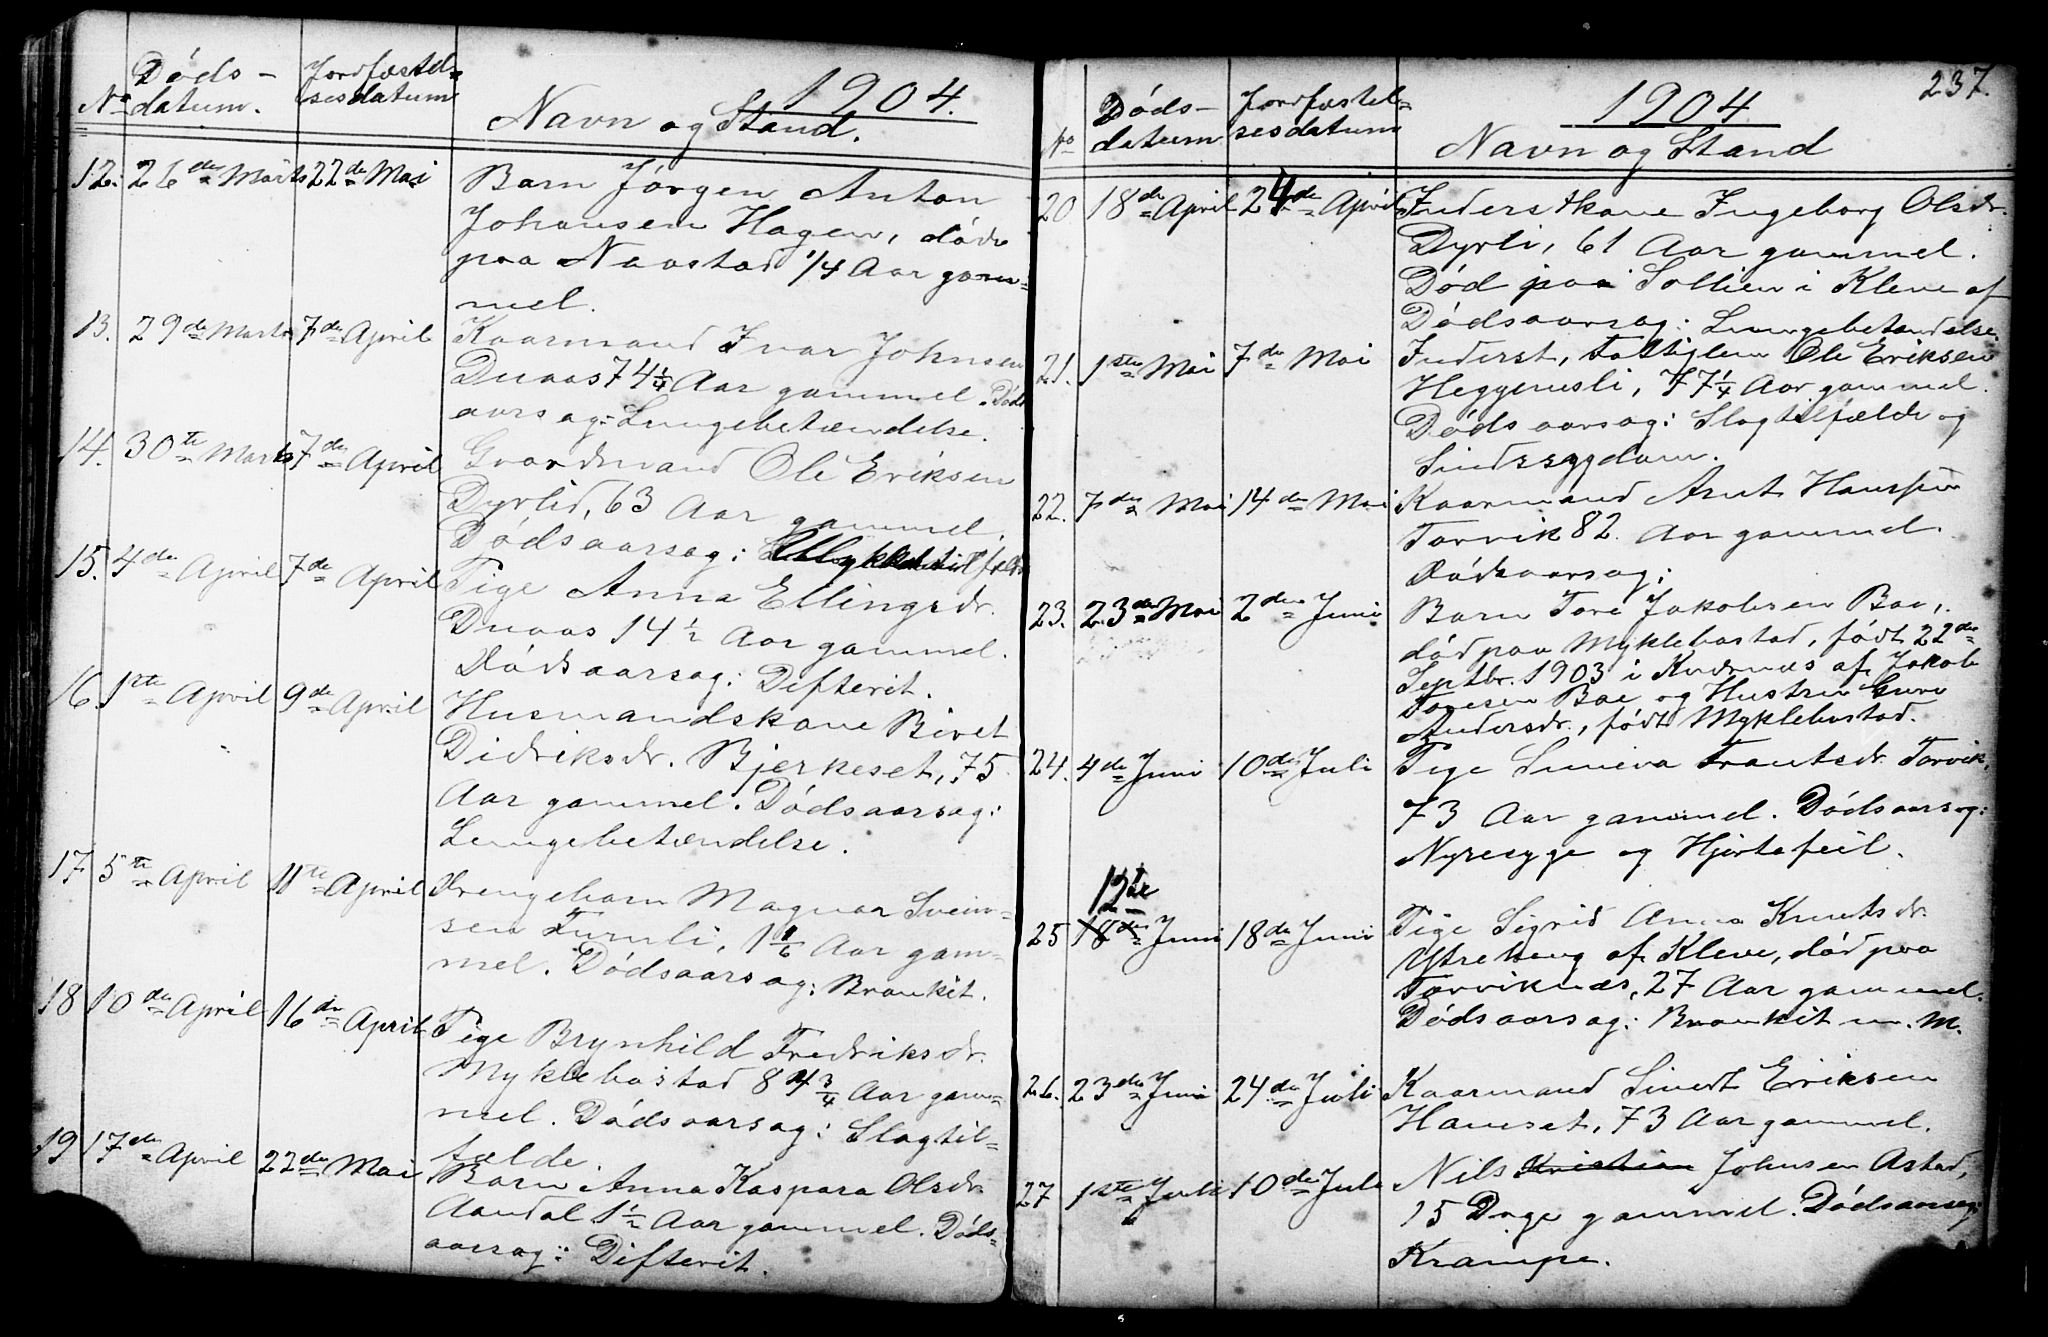 1904.
No Døds- Jordfæstel=
datum. sesdatum Navn og Stand.
12. 26de Marts 22de Mai Barn Jørgen Anton
Johansen Hagen, døde
paa Naastad 1/4 Aar gam=
mel.
13. 29de Marts 7de April Kaarmand Ivar Johnsen
Duaas 74 1/4 Aar gammel. Døds
aarsag: Lungebetændelse.
14. 30te Marts 7de April Gaardmand Ole Eriksen
Dyrlid, 63 Aar gammel.
Dødsaarsag: Ulykkestilfælde
15. 4de April 7de April Pige Anna Ellingsdr.
Duaas 14 1/2 Aar gammel.
Dødsaarsag: Difterit.
16. 1ste April 9de April Husmandskone Biret
Didriksdr. Bjerkeset, 75
Aar gammel. Dødsaarsag:
Lungebetændelse.
17 5te April 11te April Drengebarn Magnar Svein=
sen Furuli, 1 1/6 Aar gam=
mel. Dødsaarsag: Bronkit.
18 10de April 16de April Pige Brynhild Fredriksdr.
Myklebostad 84 3/4 Aar gam=
mel. Dødsaarsag: Slagtil=
fælde.
19 17de April 22de Mai Barn Anna Kaspara Olsdr.
Aandal 1 1/2 Aar gammel. Døds=
aarsag: Difterit.
237.
1904
No Døds- Jordfæstel=
datum sesdatum Navn og Stand
20 18de April 24de April Inderstkone Ingeborg Olsdr.
Dyrli, 61 Aar gammel.
Død paa Sollien i Kleve af
Dødsaarsag: Lungebetændelse.
21. 1ste Mai 7de Mai Inderst, Fattiglem Ole Eriksen
Heggemsli, 77 1/4 Aar gammel.
Dødsaarsag: Slagtilfælde og
Sindssygdom.
22. 7de Mai 14de Mai Kaarmand Arnt Hansen
Torvik 82 Aar gammel.
Dødsaarsag:
23. 23de Mai 2den Juni Barn Tore Jakobsen Boe,
død paa Myklebostad, født 22de
Septbr. 1903 i Kudnæs af Jakob
Toresen Boe og Hustru Guru
Andersdr., født Myklebostad.
24. 4de Juni 10de Juli Pige Sineva Frantsdr. Torvik,
73 Aar gammel. Dødsaarsag:
Nyresyge og Hjertefeil.
12te
25 18de Juni 18de Juni Pige Sigrid Anna Knutsdr.
Ytreheug af Kleve, død paa
Torviknæs, 27 Aar gammel.
Dødsaarsag: Bronkit m. M.
26. 23de Juni 24de Juli Kaarmand Sivert Eriksen
Haneset, 73 Aar gammel.
27 1ste Juli 10de Juli Nils Kristian Johnsen Astad,
15 Dage gammel. Dødsaarsag:
Krampe.